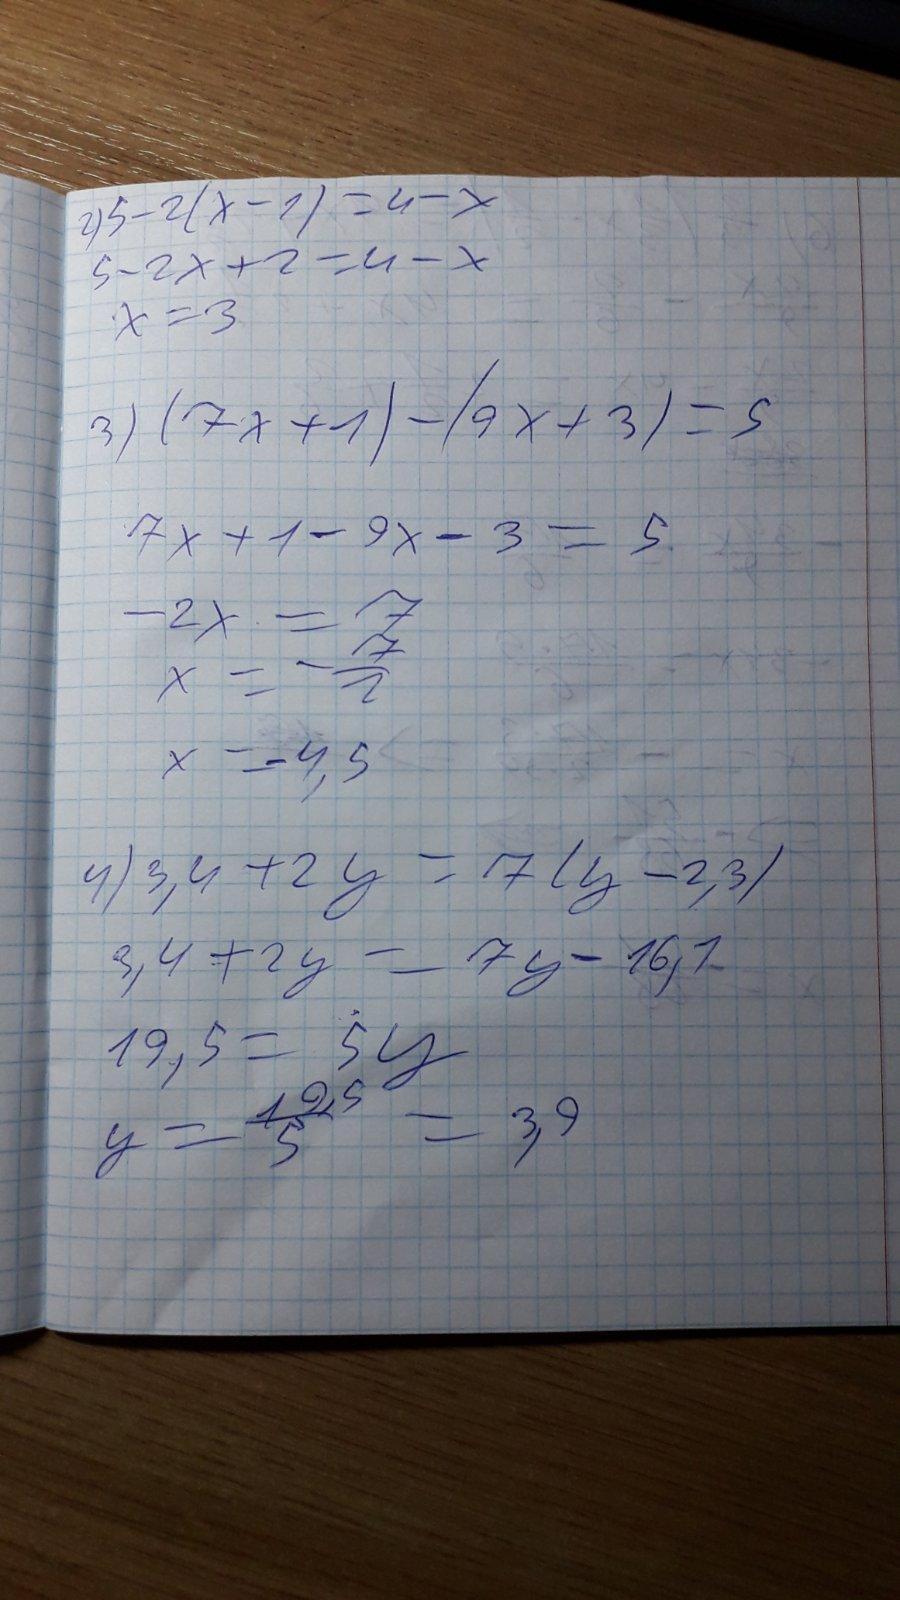 2) 5-2(x-1)=4-x
5-2x+2=4-x
x=3
3) (7x+1)-(9x+3)=5
7x+1-9x-3=5
-2x=7
x=-7/2
x=-4,5
4) 3,4+2y=7(y-2,3)
3,4+2y=7y-16,1
19,5=5y
y=19,5/5=3,9